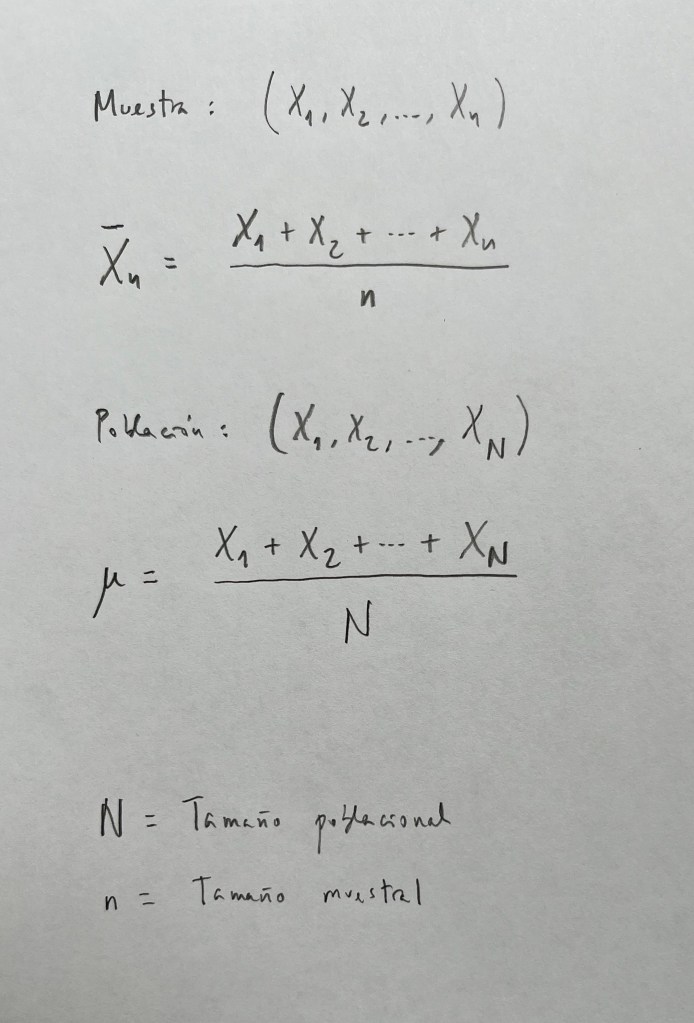 Muestra : (X₁, X₂, ..., Xₙ)
X̄ₙ = (X₁ + X₂ + ... + Xₙ) / n
Población : (X₁, X₂, ..., X_N)
μ = (X₁ + X₂ + ... + X_N) / N
N = Tamaño poblacional
n = Tamaño muestral